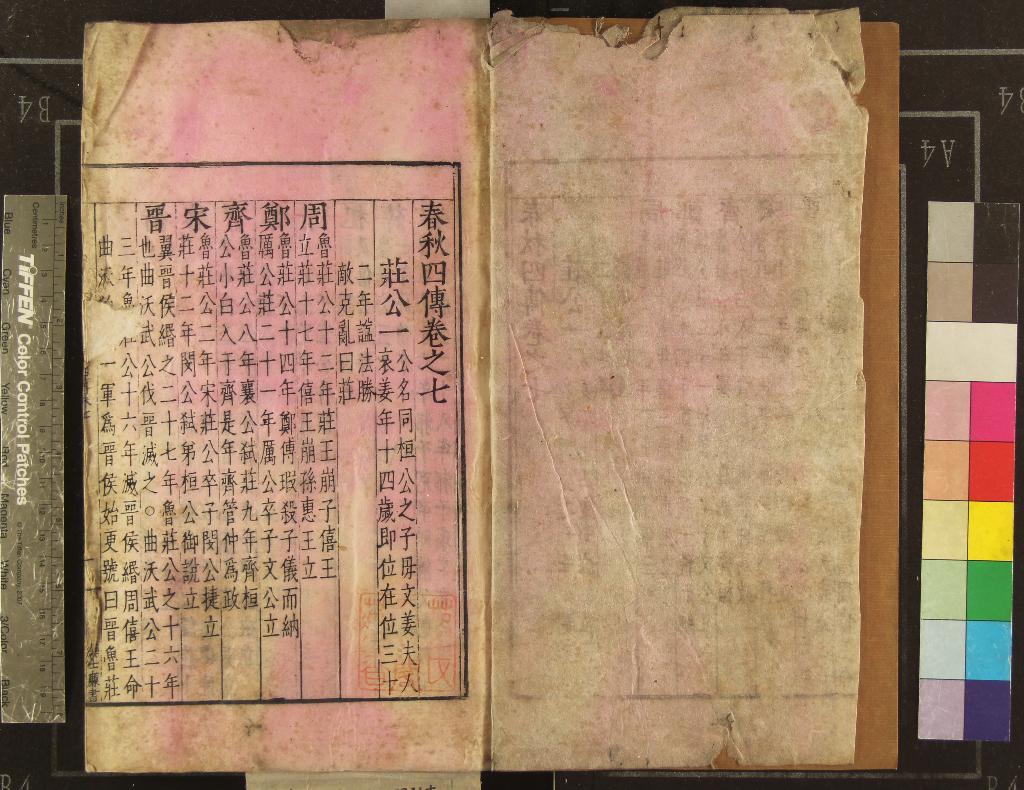 春秋四傳卷之七
莊公一
公名同桓公之子毋文姜夫人
哀姜年十四歲即位在位三十
二年謚法勝
敵克亂曰莊
周
魯莊公十二年莊王崩子僖王
立莊十七年僖王崩孫惠王立
鄭
魯莊公十四年鄭傅瑕殺子儀而納
厲公莊二十一年厲公卒子文公立
齊
魯莊公八年襄公弒莊九年齊桓
公小白入于齊是年齊管仲為政
宋
魯莊公二年宋莊公卒子閔公捷立
莊十二年閔公弒弟桓公御說立
晋
翼晋侯緡之二十七年魯莊公之十六年
也曲沃武公伐晋滅之○曲沃武公二十
三年魯 公十六年滅晋侯緡周僖王命
曲沃 一軍為晋侯始更號曰晋魯莊
B4
A4
B4
B4
B4
TIFFEN Color Control Patches
Centimetres
Inches
Blue
Cyan
Green
Yellow
Red
Magenta
White
3/Color
Black